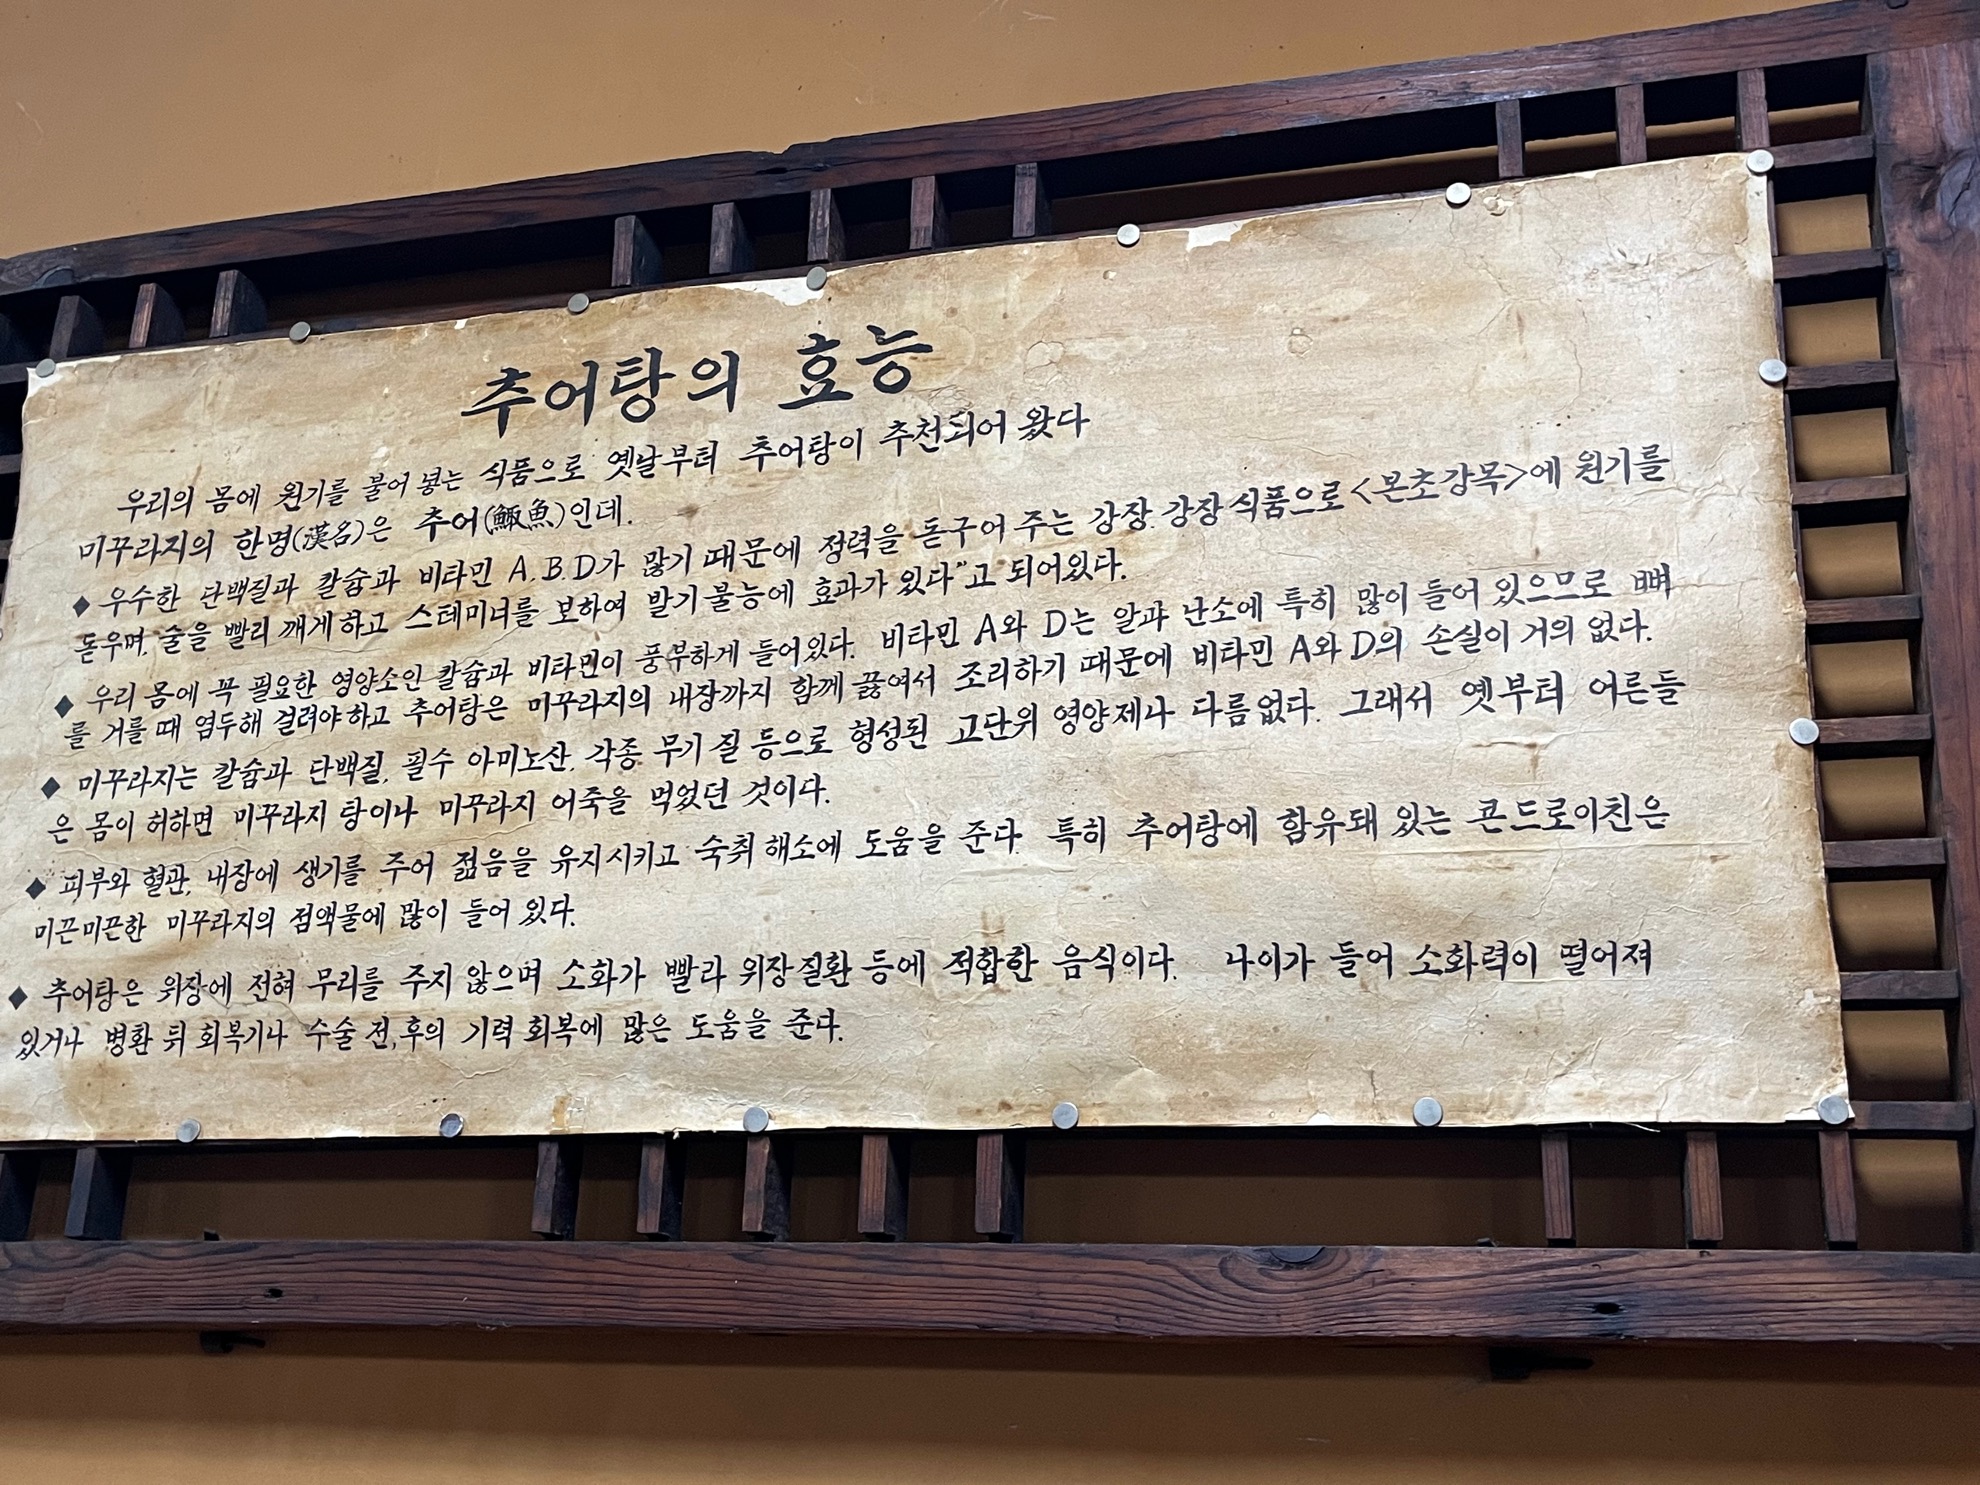 추어탕의 효능
우리의 몸에 원기를 불어 넣는 식품으로 옛날부터 추어탕이 추천되어 왔다
미꾸라지의 한명(漢名)은 추어(鯫魚)인데.
◆ 우수한 단백질과 칼슘과 비타민 A.B.D가 많기 때문에 정력을 돋구어 주는 강장.강장식품으로 <본초강목>에 원기를
돋우며, 술을 빨리 깨게하고 스테미너를 보하여 발기불능에 효과가 있다"고 되어있다.
◆ 우리 몸에 꼭 필요한 영양소인 칼슘과 비타민이 풍부하게 들어있다. 비타민 A와 D는 알과 난소에 특히 많이 들어 있으므로 뼈
를 거를 때 염두해 걸려야하고 추어탕은 미꾸라지의 내장까지 함께 끓여서 조리하기 때문에 비타민 A와 D의 손실이 거의 없다.
◆ 미꾸라지는 칼슘과 단백질, 필수 아미노산, 각종 무기질 등으로 형성된 고단위 영양제나 다름없다. 그래서 옛부터 어른들
은 몸이 허하면 미꾸라지 탕이나 미꾸라지 어죽을 먹었던 것이다.
◆ 피부와 혈관, 내장에 생기를 주어 젊음을 유지시키고 숙취해소에 도움을 준다. 특히 추어탕에 함유돼 있는 콘드로이친은
미끈미끈한 미꾸라지의 점액물에 많이 들어 있다.
◆ 추어탕은 위장에 전혀 무리를 주지 않으며 소화가 빨라 위장질환 등에 적합한 음식이다. 나이가 들어 소화력이 떨어져
있거나 병환 뒤 회복기나 수술 전,후의 기력 회복에 많은 도움을 준다.